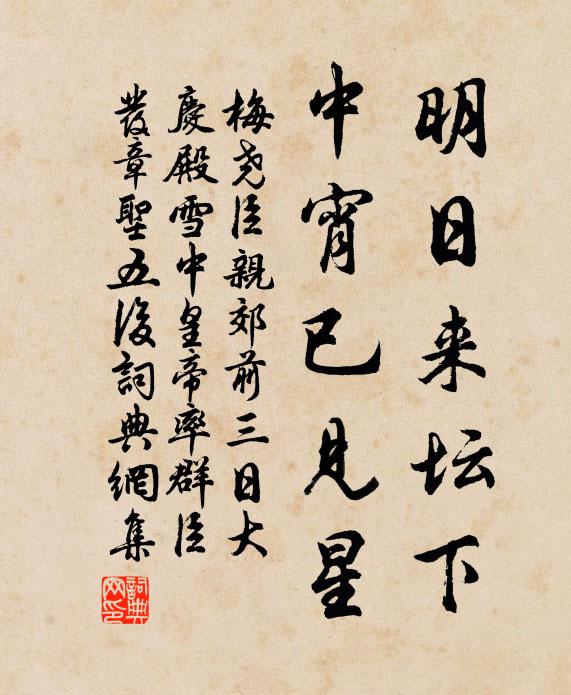 明日来坛下
中宵已见星
梅尧臣親郊前三日大
慶殿雪中皇帝率群臣
發章聖五后詞典網集
詞典網印